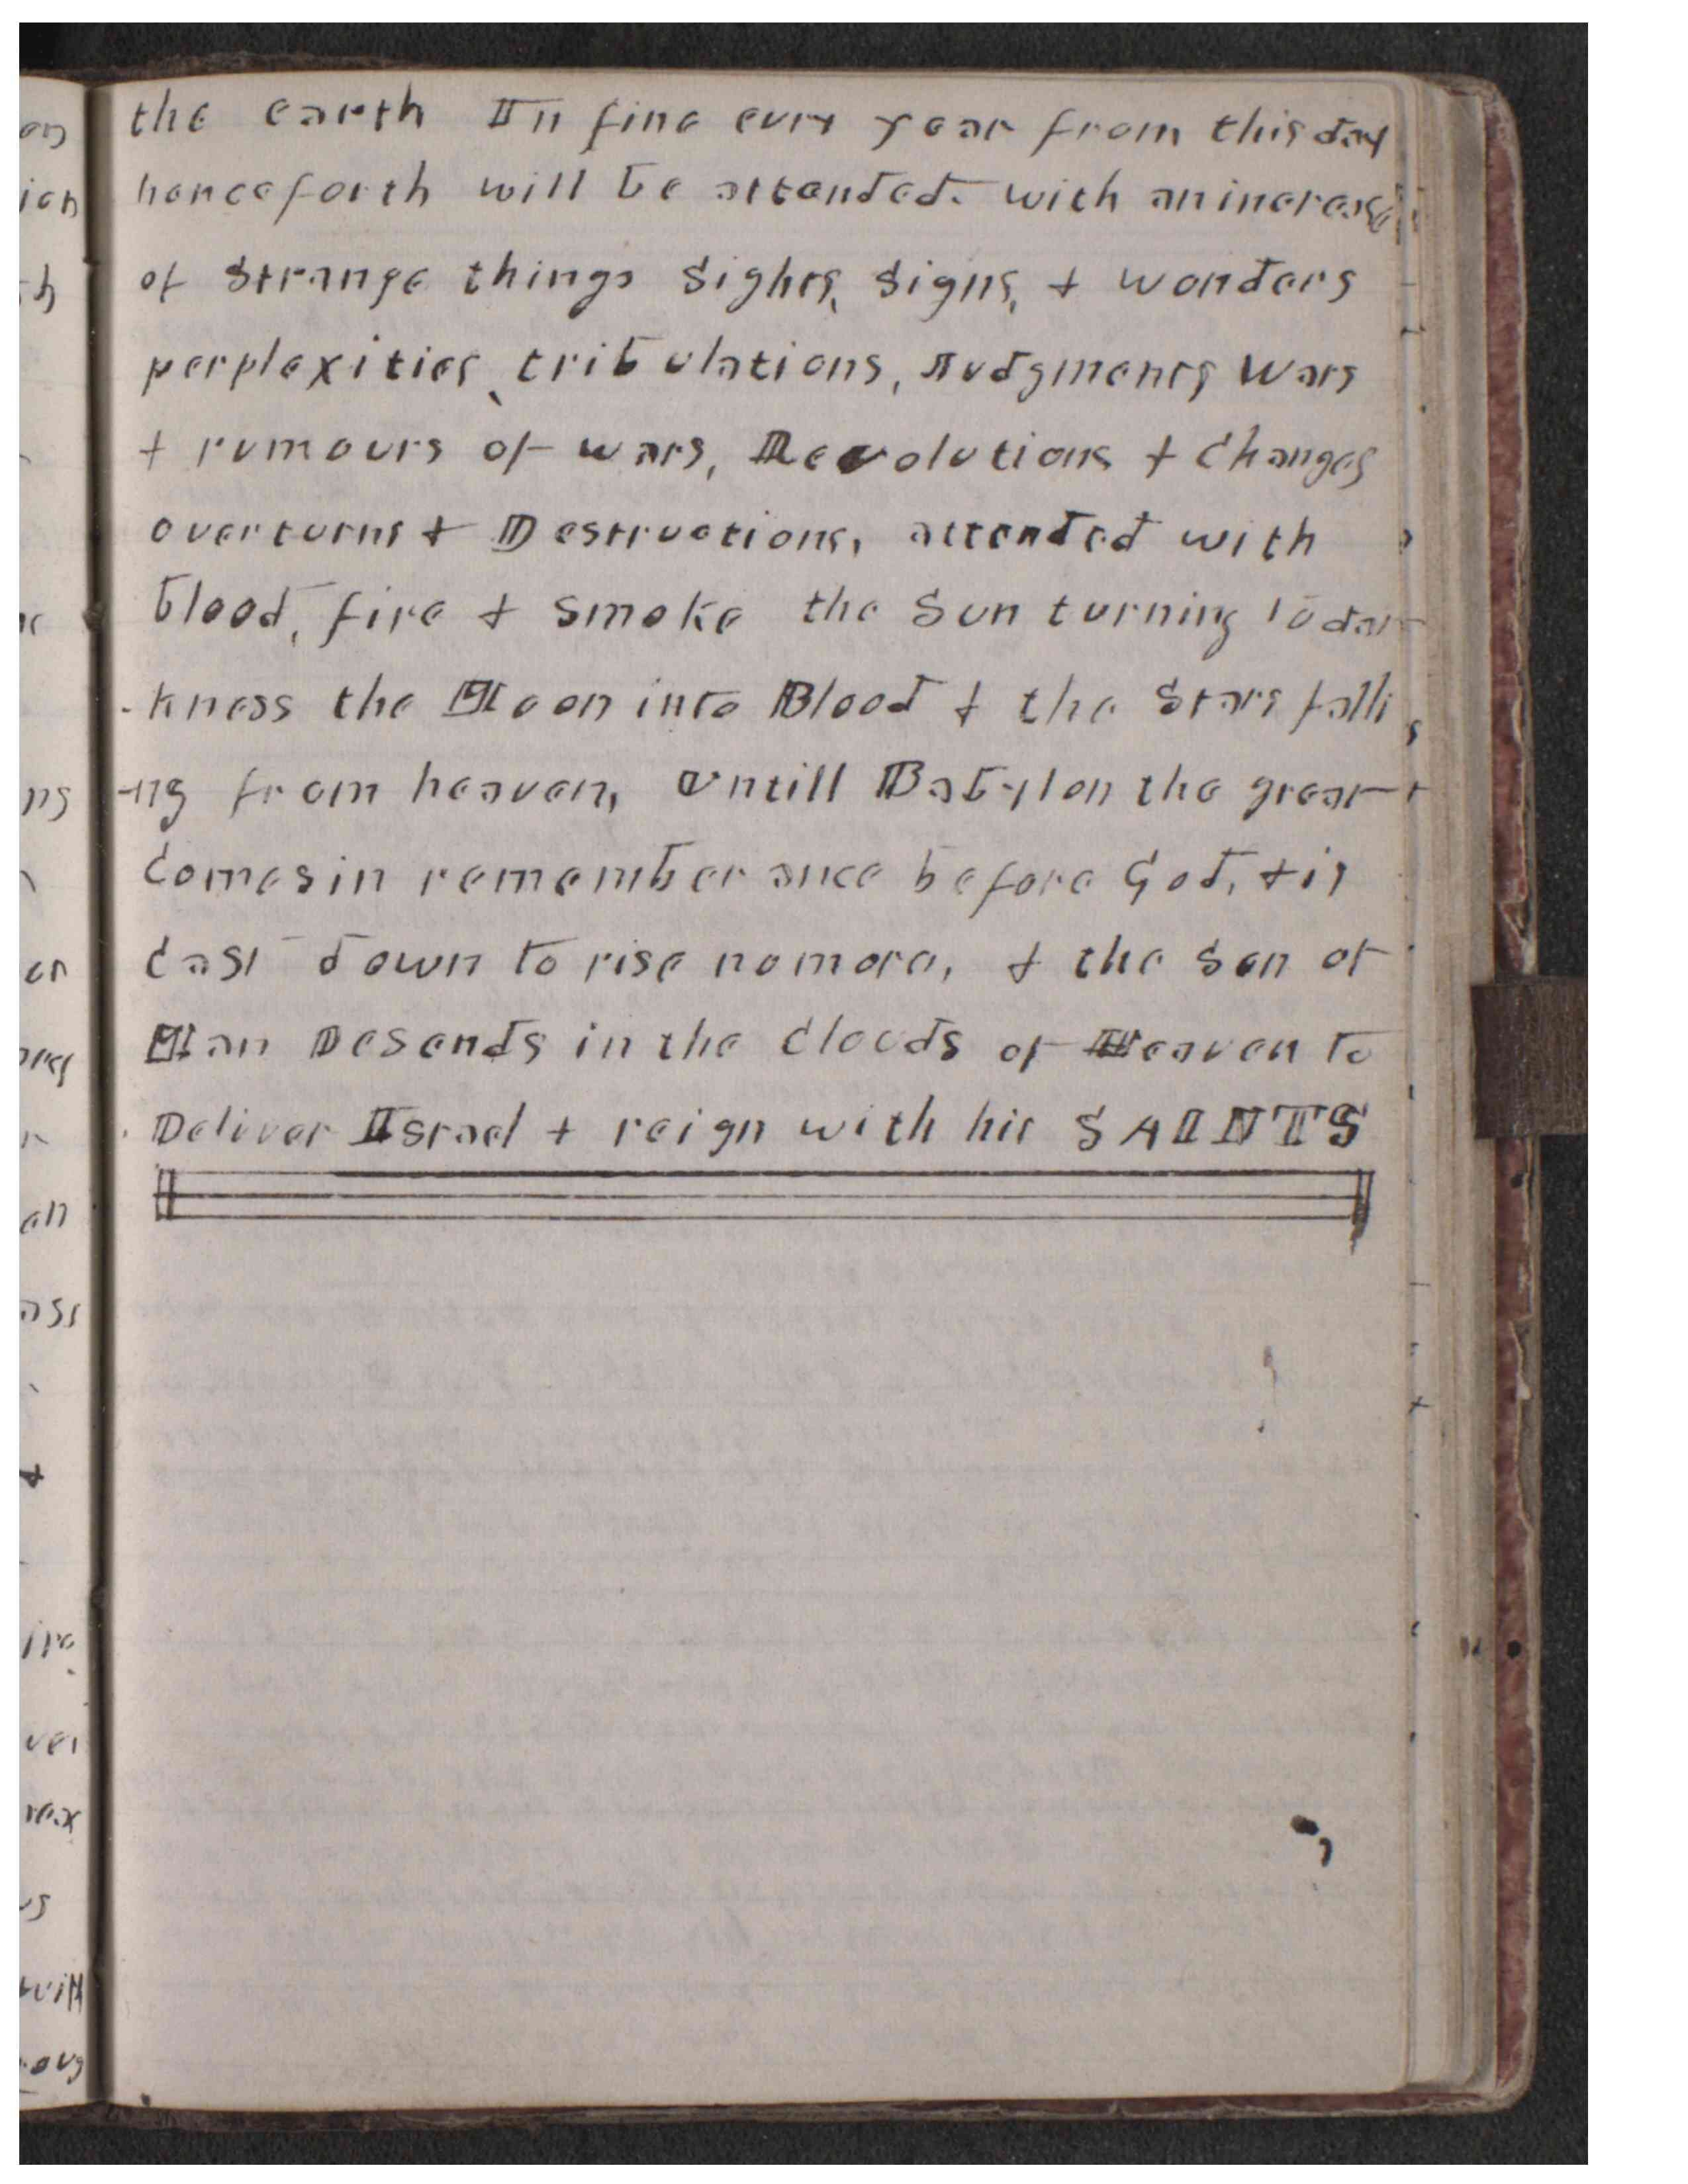 the earth In fine evry year from this day
henceforth will be attended. with an increase
of Strange things Sights, Signs, + wonders
perplexities, tribulations, Judgments Wars
+ rumours of wars, Revolutions + Changes
overturns + Destructions, attended with
blood, fire + Smoke the Sun turning to dar
-kness the Moon into Blood + the Stars falli
-ng from heaven, Untill Babylon the great
Comes in rememberance before God, + is
Cast down to rise no more, + the Son of
Man Desends in the Clouds of Heaven to
Deliver Israel + reign with his SAINTS